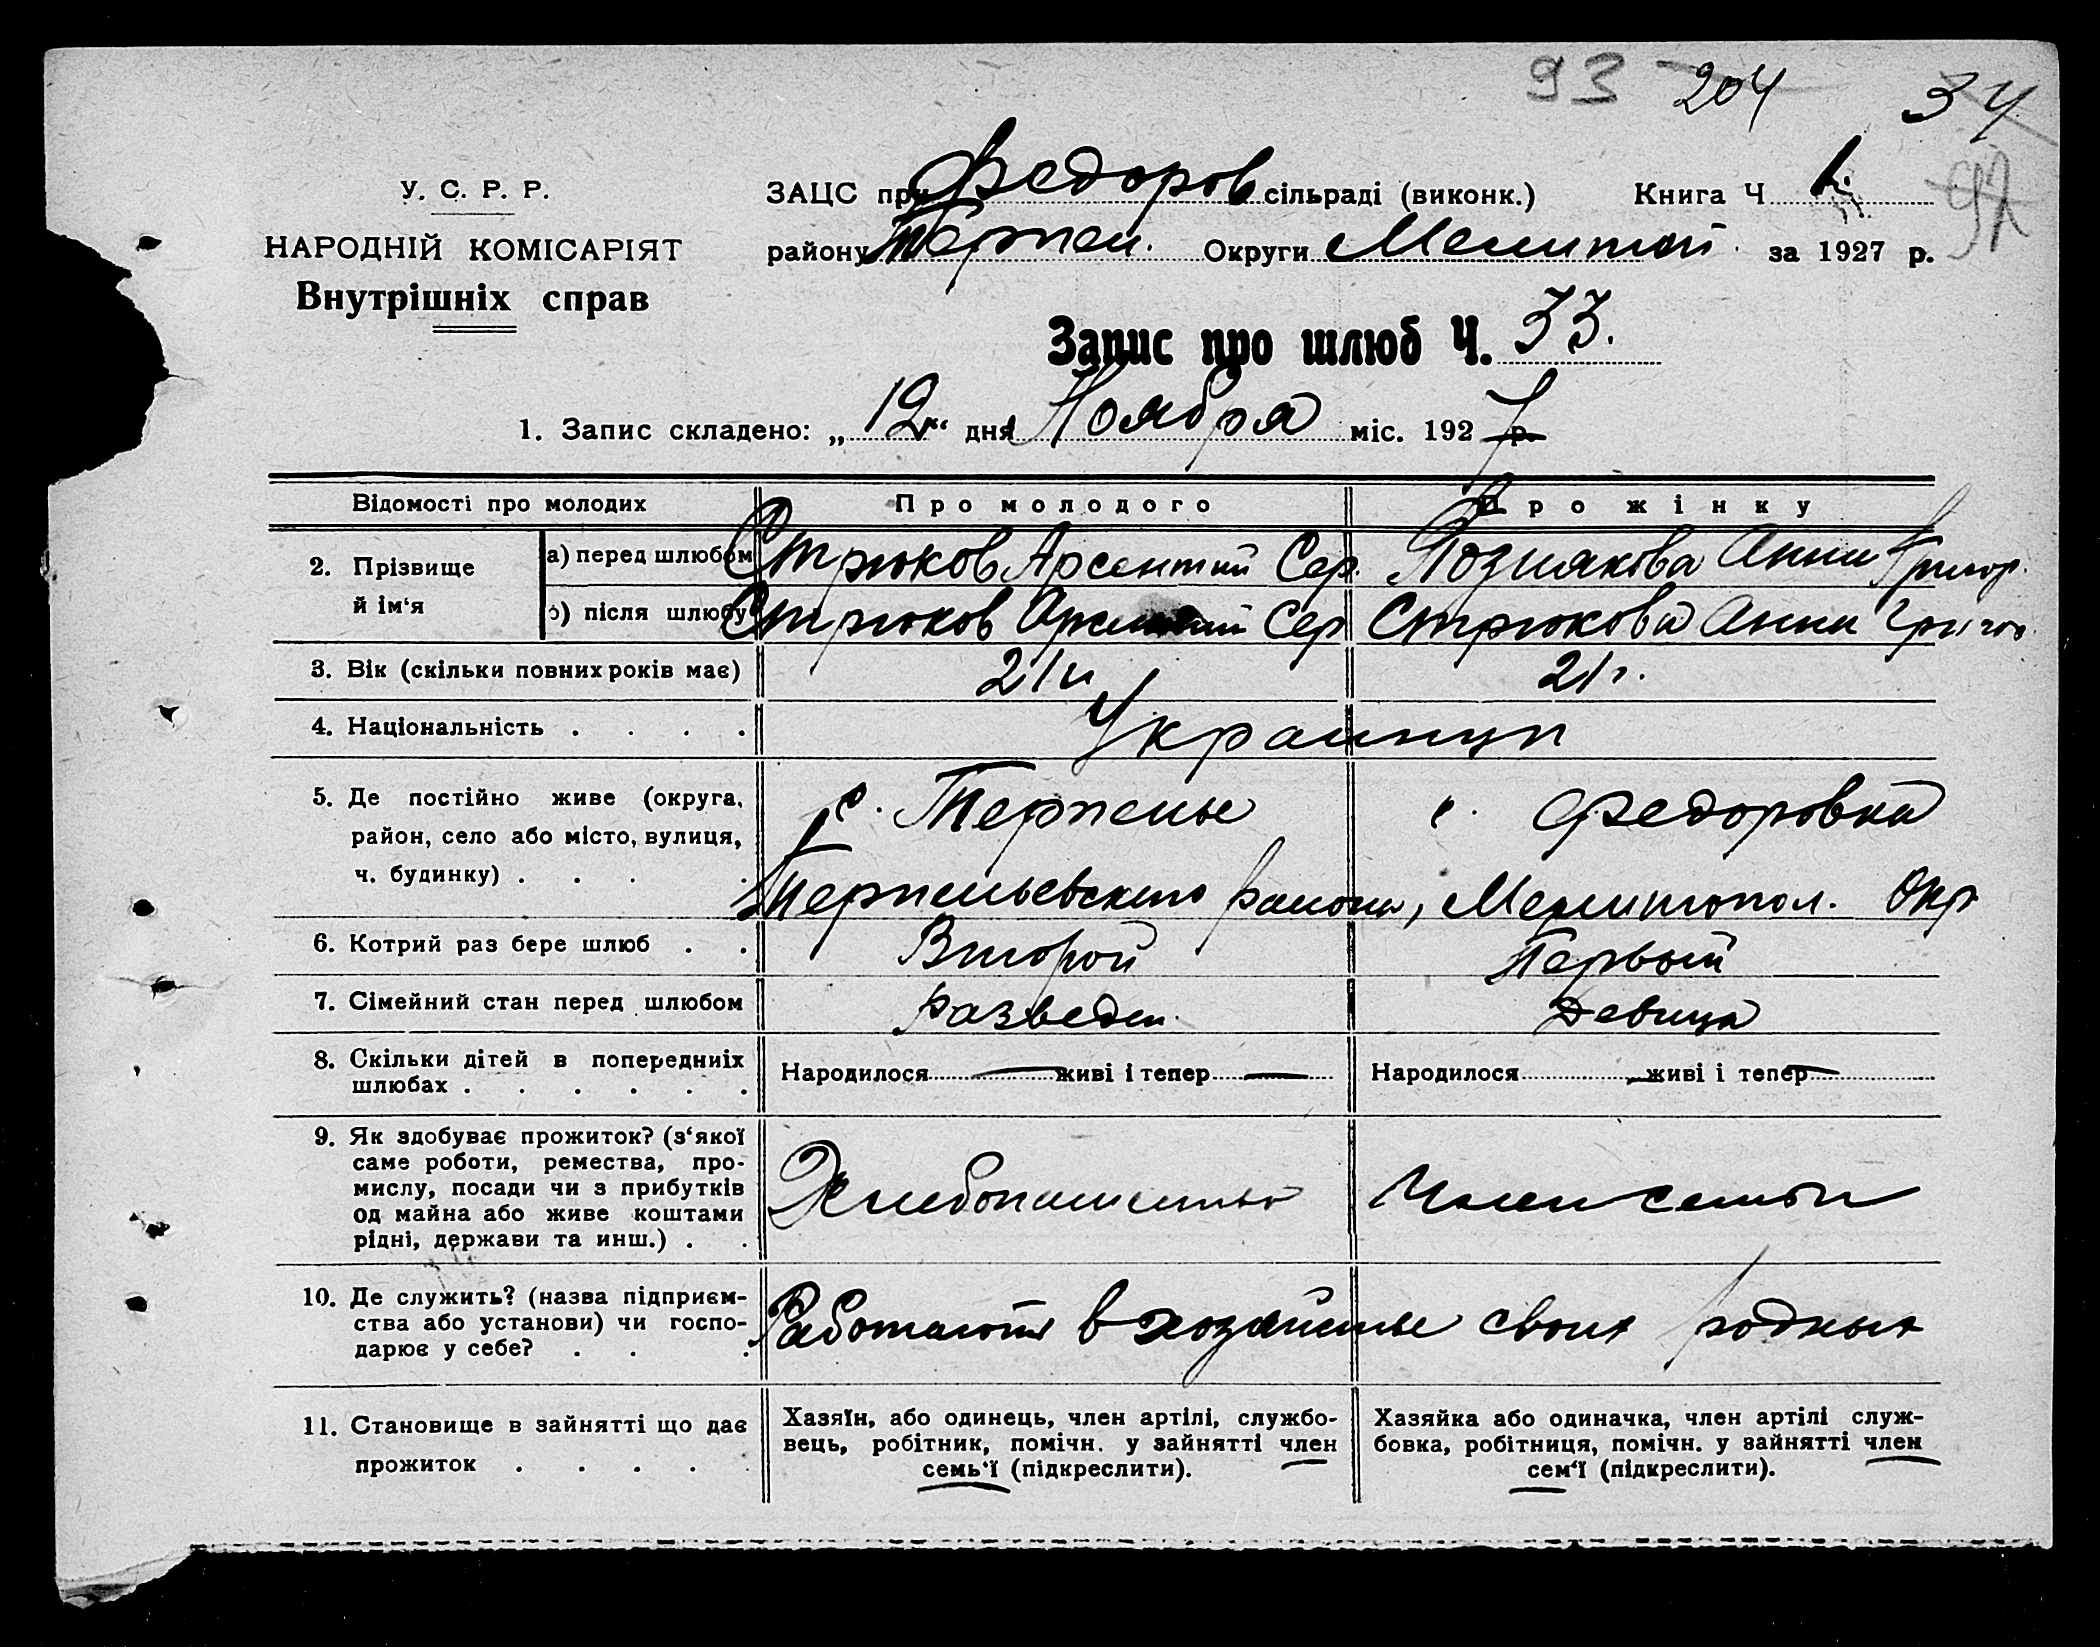 93 204 34
97
У. С. Р. Р.
НАРОДНІЙ КОМІСАРІЯТ
Внутрішніх справ
ЗАЦС при Федоров сільраді (виконк.) Книга Ч
району Терпен. Округи Мелитоп. за 1927 р.
Запис про шлюб Ч. 33.
1. Запис складено: „ 12 “ дня Ноября міс. 1927 р.
Відомості про молодих Про молодого Про жінку
2. Прізвище й ім‘я
а) перед шлюбом Стрюков Арсентий Сер. Позднякова Анна Григор.
б) після шлюбу Стрюков Арсентий Сер Стрюкова Анна Григо.
3. Вік (скільки повних років має) 21 21 г.
4. Національність . . . . Украинцы
5. Де постійно живе (округа, с. Терпенье с. Федоровка
район, село або місто, вулиця,
ч. будинку) . . . . Терпеньевского района, Мелитопол. Окр
6. Котрий раз бере шлюб . . Второй Первый
7. Сімейний стан перед шлюбом Разведен. Девица
8. Скільки дітей в попередниіх
шлюбах . . . . . . Народилося — живі і тепер — Народилося — живі і тепер —
9. Як здобуває прожиток? (з‘якої
саме роботи, ремества, про-
мислу, посади чи з прибутків
од майна або живе коштами
рідні, держави та инш.) . .
Хлебопашество Член семьи
10. Де служить? (назва підприєм-
ства або установи) чи госпо-
дарює у себе? . . .
Работают в хозяйстве своих родных
11. Становище в зайнятті що дає
прожиток . . . . .
Хазяїн, або одинець, член артілі, службо-
вець, робітник, помічн. у зайнятті член
семь‘ї (підкреслити).
Хазяйка або одиначка, член артілі служ-
бовка, робітниця, помічн. у зайнятті член
сем‘ї (підкреслити).